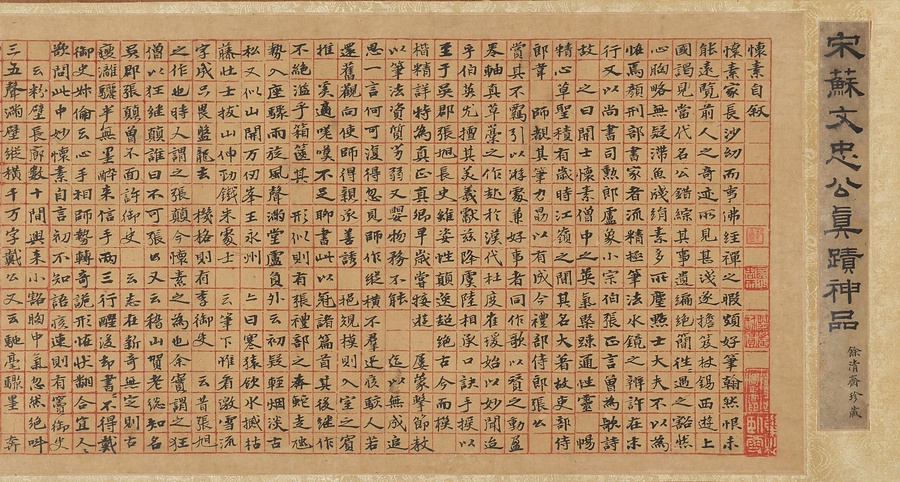 宋蘇文忠公眞蹟神品
餘清齋珍藏
懷素自叙
懷素家長沙幼而事佛經禪之暇頗好筆翰然恨未
能遠覧前人之奇迹所見甚淺遂擔笈杖錫西遊上
國謁見當代名公錯綜其事遺編絕簡往〻遇之豁然
心胸略無疑滯魚牋絹素多所塵點士大夫不以為
恠焉顏刑部書家者流精極筆法水鏡之辨許在末
行又以尚書司勲郎盧象小宗伯張正言曽為歌詩
故 之曰開士懷素僧中之英氣槩踈通性靈 暢
精心草聖積有歲時江嶺之間其名大著故吏部侍
郎韋 師覩其筆力勗以有成今禮部侍郎張公
賞其不羈引以遊處兼好事者同作歌以賛之動盈
卷軸真草藁之作起於漢代杜度崔瑗始以妙聞迨
乎伯英尤擅其美羲獻茲降虞陸相承口訣手授以
至于吳郡張旭長史雖姿性顛逸超絕古今而模
楷精詳特為真正真卿早歲嘗接遊 屢蒙擊節教
以筆法資質劣弱又嬰物務不能 迄以無成追
思一言何可復得忽見師作縱橫不羣迅疾駭人若
還舊觀向使師得親承善誘 挹規模則入室之賓
推 奚適嗟嘆不足聊書此以冠諸篇首其後継作
不絕溢乎箱篋其 形似則有張禮部云奔蛇走虺
勢入座驟雨旋風聲滿堂盧負外云初疑輕烟淡古
松又似山開万仞峯王永州 曰寒猿飲水撼枯
藤壮士拔山伸勁鐵朱處士 云筆下唯看激電流
字成只畏盤龍去 機格則有李御史 云昔張旭
之作也時人謂之張顛今懷素之為也余實謂之狂
僧以狂継顛誰曰不可張公又云稽山賀老惣知名
吳郡張顛曽不面許御史 云志在新奇無定則古
瘦灕驪半無墨醉来信手兩三行醒後却書〻不得戴
御史 倫云心手相師勢轉奇詭形恠狀翻合宜人〻
欲問此中妙懷素自言初不知語疾速則有竇御史
云粉壁長廊數十間興来小豁胸中氣忽然絕叫
三五聲滿壁縱橫千万字戴公又云馳毫驟墨 奔